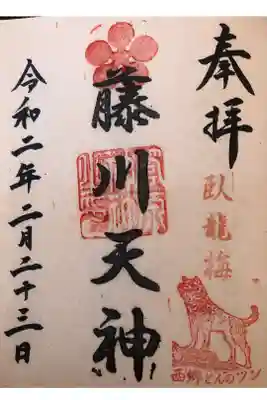 奉拝
臥龍梅
西郷どんのツン
藤川天神
令和二年二月二十三日